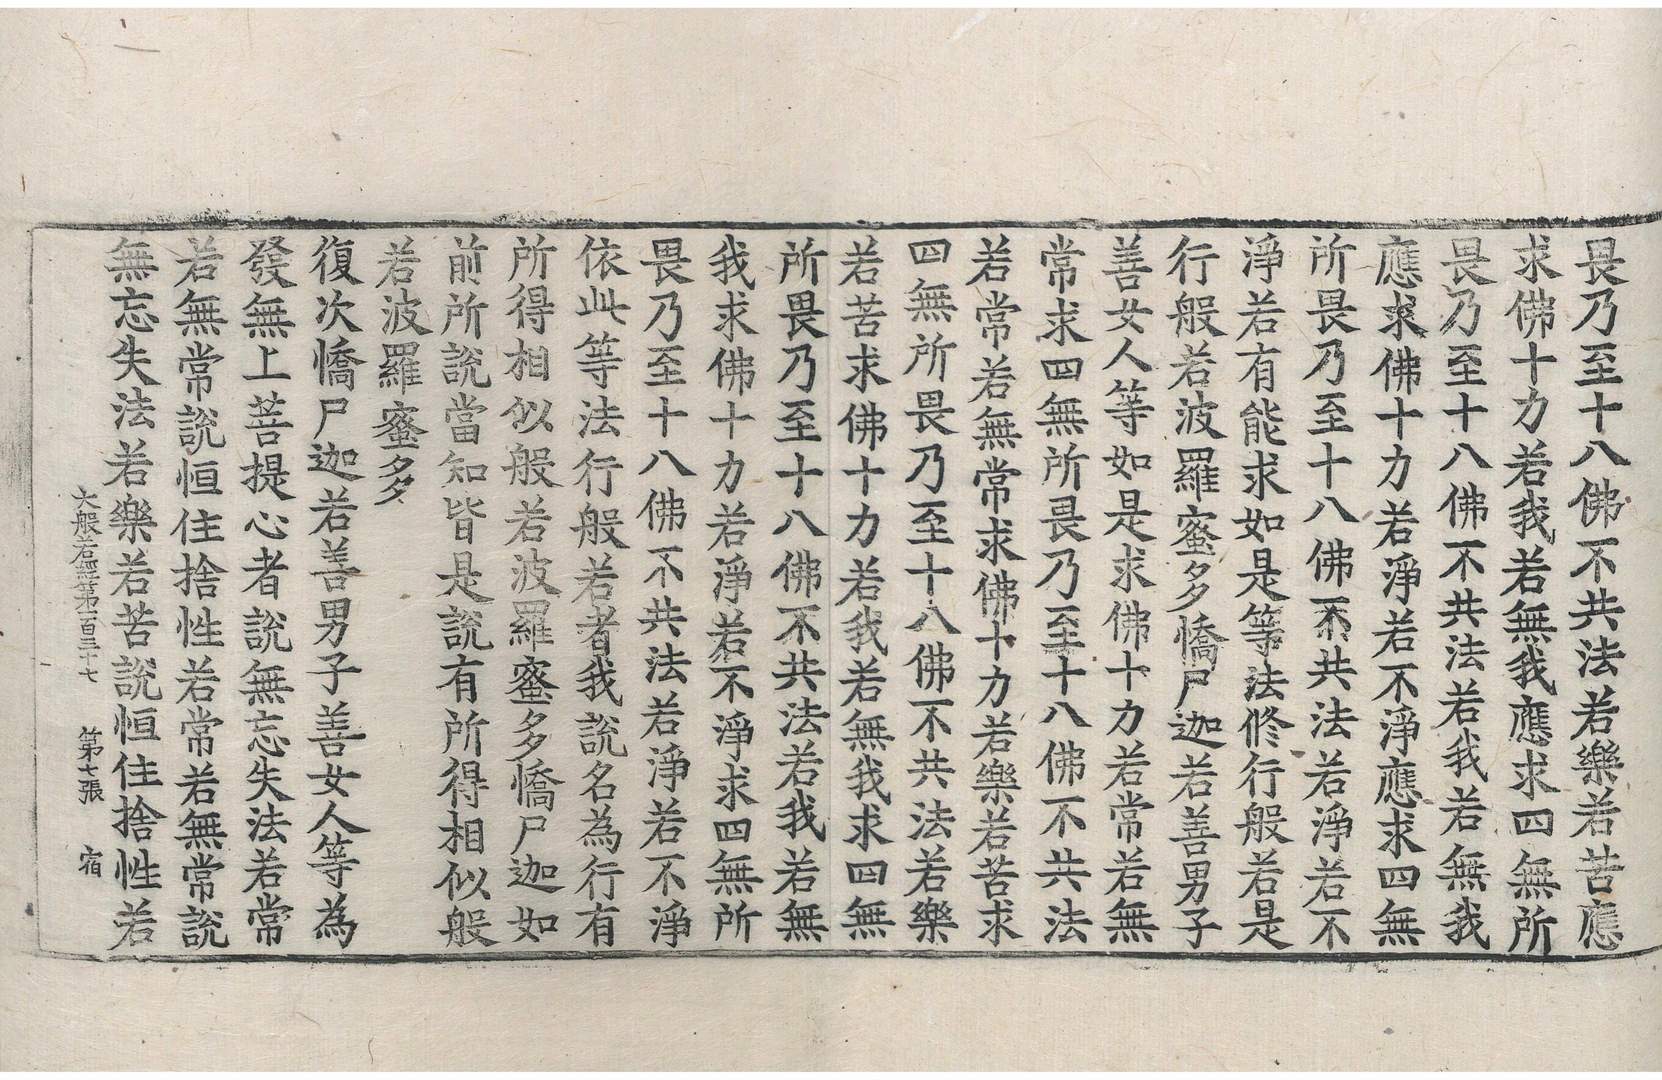 畏乃至十八佛不共法若樂若苦應
求佛十力若我若無我應求四無所
畏乃至十八佛不共法若我若無我
應求佛十力若淨若不淨應求四無
所畏乃至十八佛不共法若淨若不
淨若有能求如是等法修行般若是
行般若波羅蜜多憍尸迦若善男子
善女人等如是求佛十力若常若無
常求四無所畏乃至十八佛不共法
若常若無常求佛十力若樂若苦求
四無所畏乃至十八佛不共法若樂
若苦求佛十力若我若無我求四無
所畏乃至十八佛不共法若我若無
我求佛十力若淨若不淨求四無所
畏乃至十八佛不共法若淨若不淨
依此等法行般若者我說名為行有
所得相似般若波羅蜜多憍尸迦如
前所說當知皆是說有所得相似般
若波羅蜜多
復次憍尸迦若善男子善女人等為
發無上菩提心者說無忘失法若常
若無常說恒住捨性若常若無常說
無忘失法若樂若苦說恒住捨性若
大般若經第一百三十七　第七張　宿